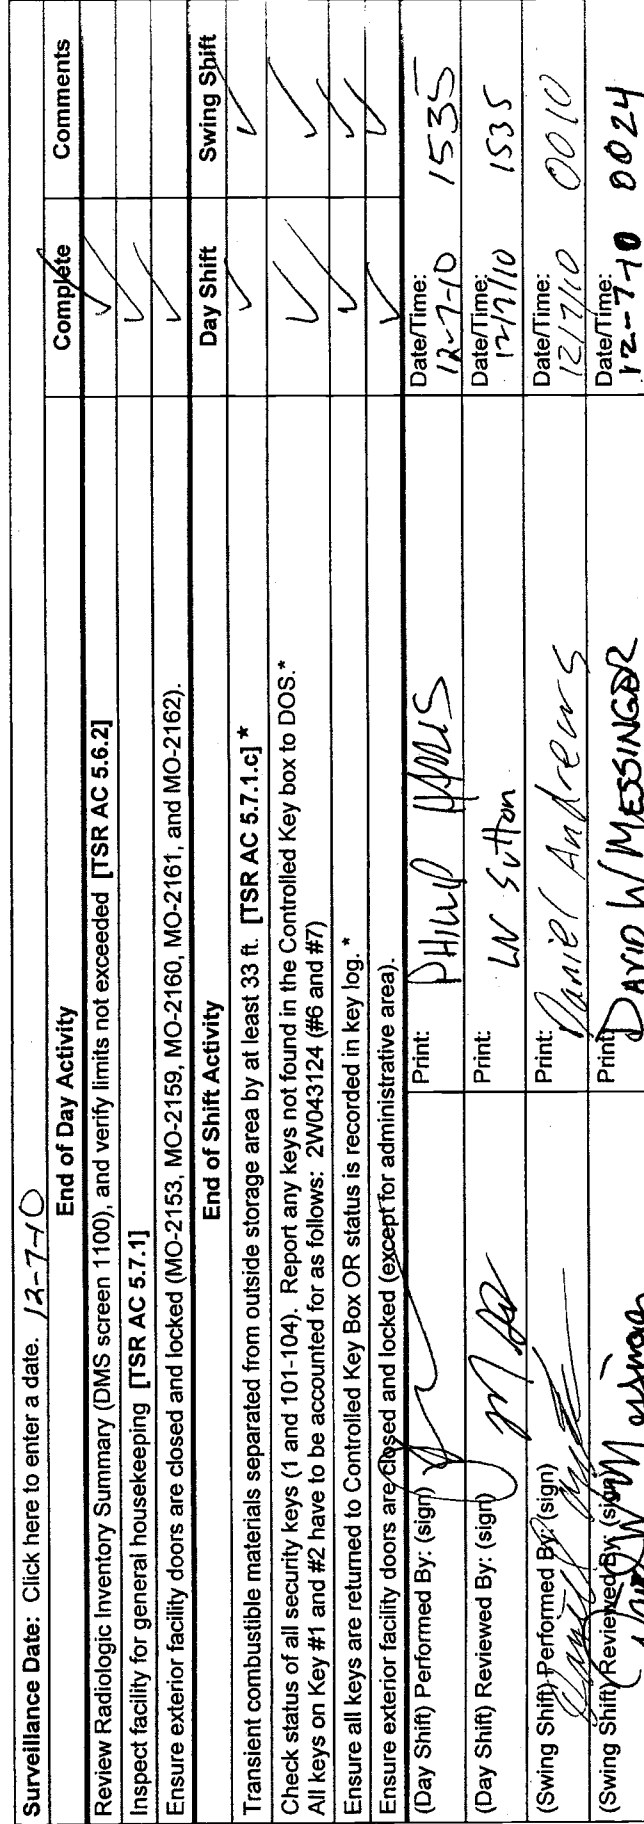 Surveillance Date: Click here to enter a date. 12-7-10
End of Day Activity Complete Comments
Review Radiologic Inventory Summary (DMS screen 1100), and verify limits not exceeded [TSR AC 5.6.2] ✓
Inspect facility for general housekeeping [TSR AC 5.7.1] ✓
Ensure exterior facility doors are closed and locked (MO-2153, MO-2159, MO-2160, MO-2161, and MO-2162). ✓
End of Shift Activity Day Shift Swing Shift
Transient combustible materials separated from outside storage area by at least 33 ft. [TSR AC 5.7.1.c] * ✓ ✓
Check status of all security keys (1 and 101-104). Report any keys not found in the Controlled Key box to DOS.* ✓ ✓
All keys on Key #1 and #2 have to be accounted for as follows: 2W043124 (#6 and #7)
Ensure all keys are returned to Controlled Key Box OR status is recorded in key log. * ✓ ✓
Ensure exterior facility doors are closed and locked (except for administrative area). ✓ ✓
(Day Shift) Performed By: (sign) Print: PHILLIP Date/Time: 12-7-10 1535
(Day Shift) Reviewed By: (sign) Print: Sutton Date/Time: 12/7/10 1535
(Swing Shift) Performed By: (sign) Print: Daniel Andrews Date/Time: 12/7/10 0010
(Swing Shift) Reviewed By: (sign) David W Messinger Print: DAVID W MESSINGER Date/Time: 12-7-10 0024